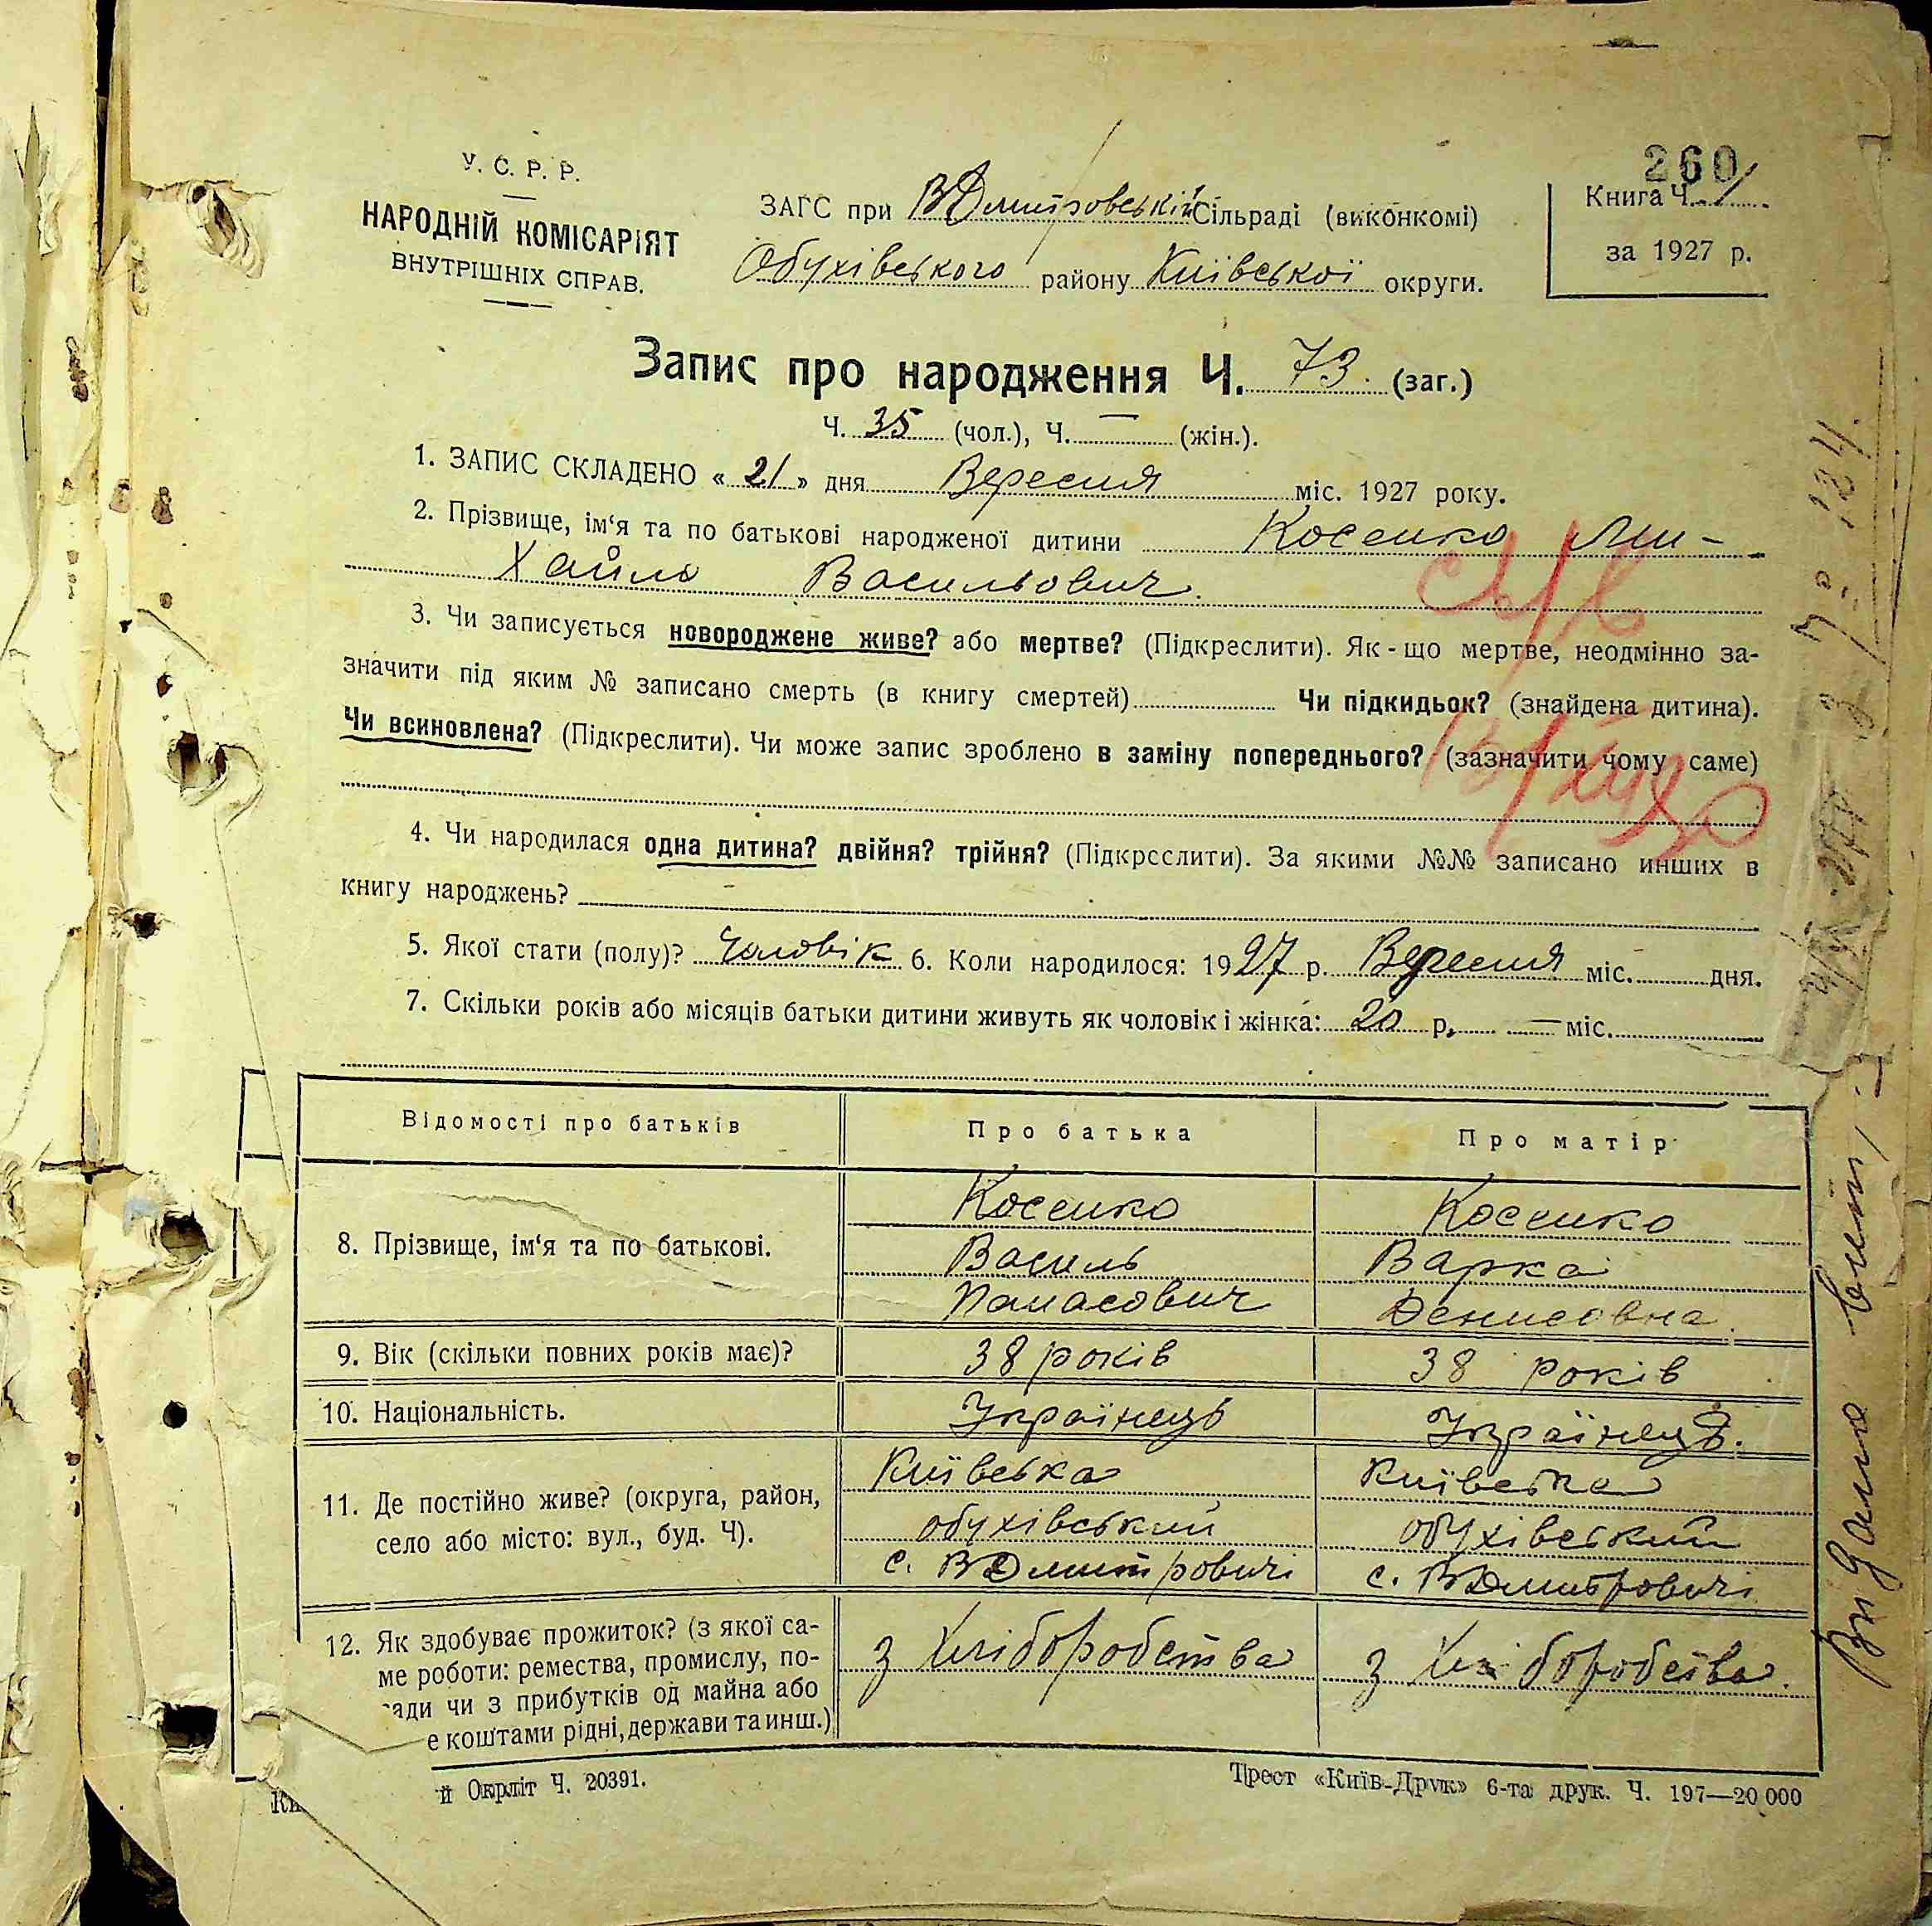 260
У. С. Р. Р.
НАРОДНІЙ КОМІСАРІЯТ
ВНУТРІШНІХ СПРАВ.
ЗАГС при ВДмитровській Сільраді (виконкомі)
Обухівського району Київської округи.
Книга Ч. 1
за 1927 р.
Запис про народження Ч. 73. (заг.)
Ч. 35 (чол.), Ч. — (жін.).
1. ЗАПИС СКЛАДЕНО « 21 » дня Вересня міс. 1927 року.
2. Прізвище, ім‘я та по батькові народженої дитини Косенко Ми-
хайло Васильович.
3. Чи записується новороджене живе? або мертве? (Підкреслити). Як-що мертве, неодмінно за-
значити під яким № записано смерть (в книгу смертей) Чи підкидьок? (знайдена дитина).
Чи всиновлена? (Підкреслити). Чи може запис зроблено в заміну попереднього? (зазначити чому саме)
4. Чи народилася одна дитина? двійня? трійня? (Підкреслити). За якими №№ записано инших в
книгу народжень?
5. Якої стати (полу)? Чоловік 6. Коли народилося: 1927 р. Вересня міс. дня.
7. Скільки років або місяців батьки дитини живуть як чоловік і жінка: 20 р. — міс.
Відомості про батьків Про батька Про матір
8. Прізвище, ім‘я та по батькові.
Косенко Косенко
Василь Варка
Панасович Денисовна.
9. Вік (скільки повних років має)? 38 років 38 років
10. Національність. Українець Українець.
11. Де постійно живе? (округа, район,
село або місто: вул., буд. Ч).
Київська Київська
обухівський обухівський
с. ВДмитровичі с. ВДмитровичі
12. Як здобуває прожиток? (з якої са-
ме роботи: ремества, промислу, по-
ади чи з прибутків од майна або
е коштами рідні, держави та инш.)
з хліборобства з хліборобства.
й Окрліт Ч. 20391.
Трест «Київ-Друк» 6-та друк. Ч. 197—20 000
Видано